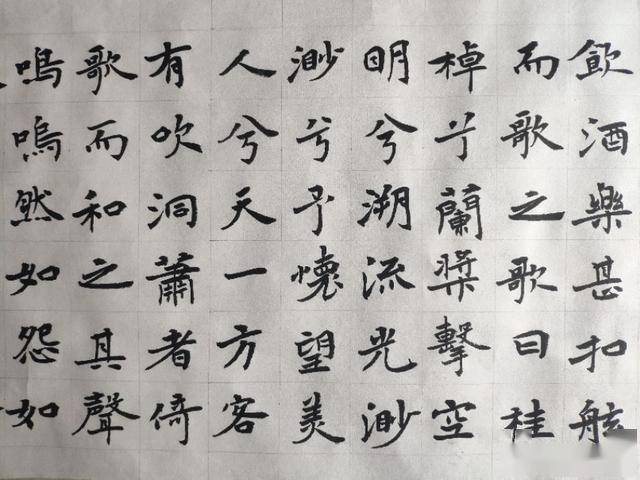 飲酒樂甚扣舷
而歌之歌曰桂
棹兮蘭槳擊空
明兮溯流光渺
渺兮予懷望美
人兮天一方客
有吹洞蕭者倚
歌而和之其聲
嗚嗚然如怨如